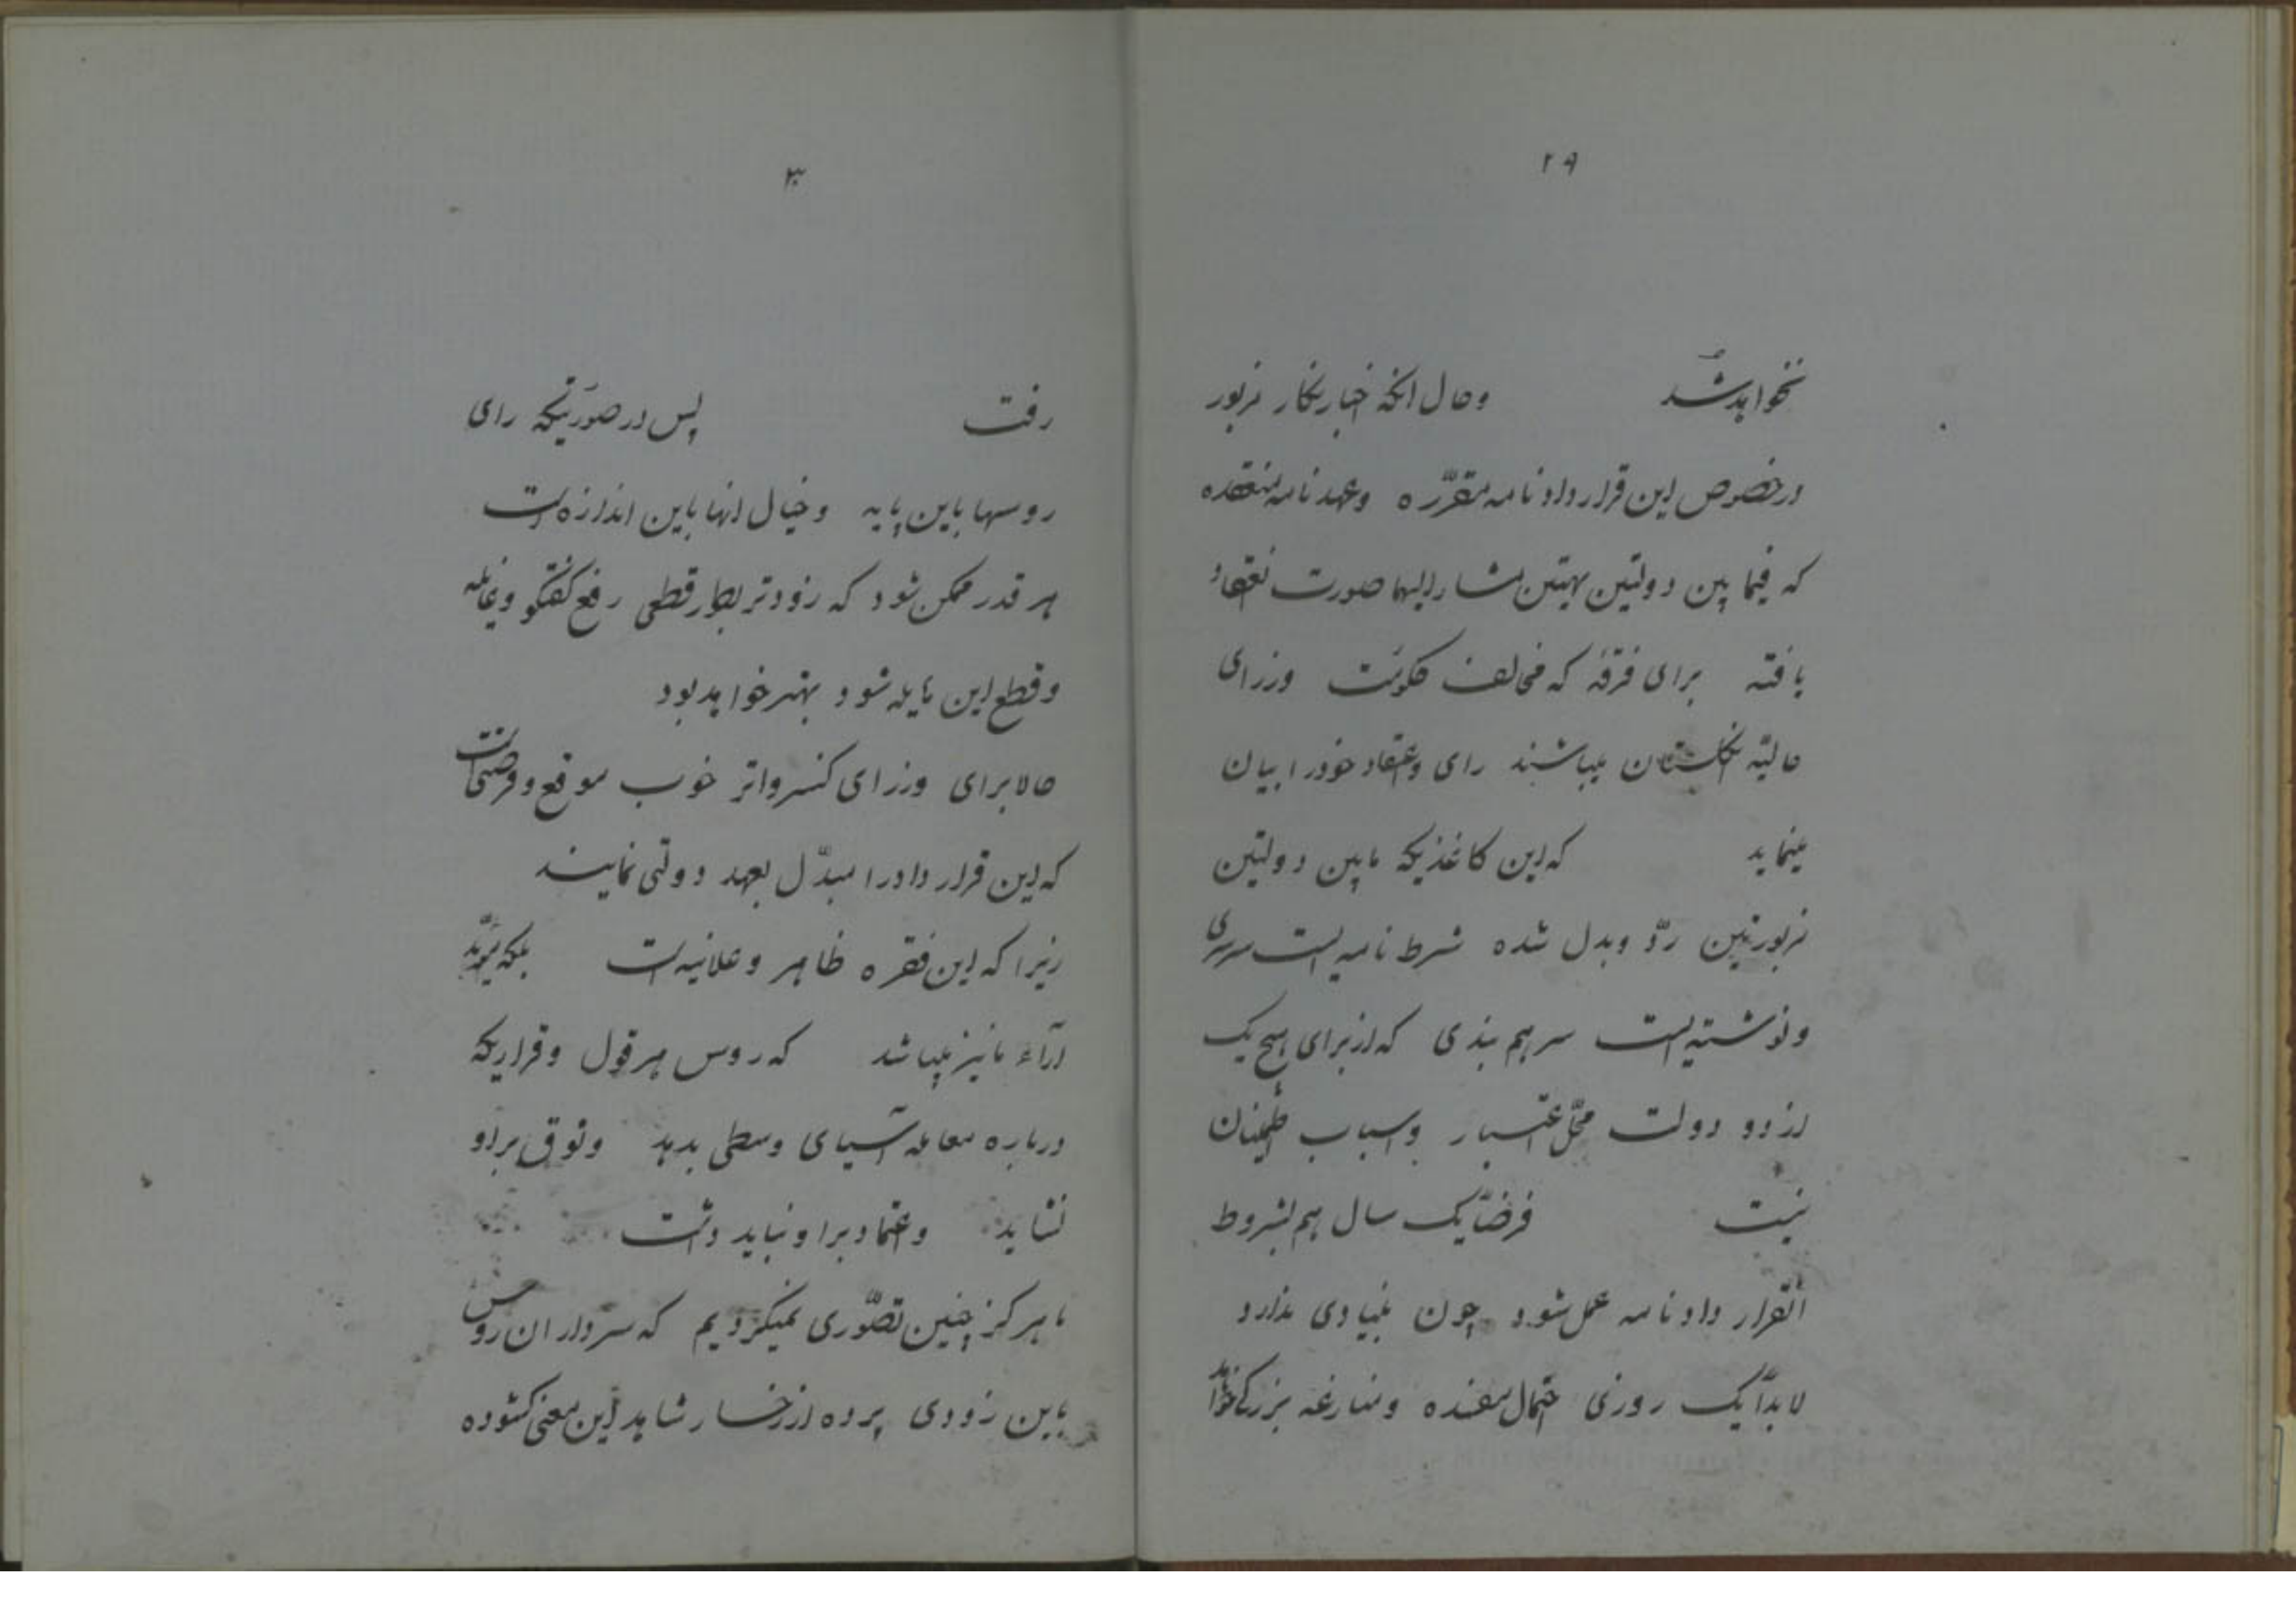 ۲۹
نخواهد شد وحال انکه اخبار نکار مزبور
در خصوص این قرار داد نامه مقرّره وعهد نامه منعقده
که فیما بین دولتین بهیتین مشار الیهما صورت انعقاد
یافته برای فرقهٔ که مخالف حکومت وزرای
حالیّه انکلستان میباشند رای واعتقاد خود را بیان
مینماید که این کاغذیکه مابین دولتین
مزبورتین ردّ وبدل شده شرط نامه ایست سرسری
ونوشته ایست سرهم بندی که از برای هیچ یک
از دو دولت محلّ اعتبار واسباب اطمینان
نیست فرضاً یک سال هم بشروط
انقرار داد نامه عمل شود چون بنیادی ندارد
لابدّاً یک روزی احتمال مفسده ومنازعه بزرکی خواهد
۳۰
رفت پس در صورتیکه رای
روسها باین پایه وخیال انها باین اندازه است
هر قدر ممکن شود که زودتر بطور قطعی رفع کفتکو وغایله
وقطع این مایله شود بهتر خواهد بود
حالا برای وزرای کنسرواتر خوب موقع وفرصتی است
که این قرار داد را مبدّل بعهد دولتی نمایند
زیرا که این فقره ظاهر وعلانیه است بلکه مؤیّد
آراء ما نیز میباشد که روس هر قول وقراریکه
درباره معامله آسیای وسطی بدهد وثوق بر او
نشاید واعتماد بر او نباید داشت
ما هرکز چنین تصّوری نمیکردیم که سرداران روس
باین زودی پرده از رخسار شاهد این معنی کشوده